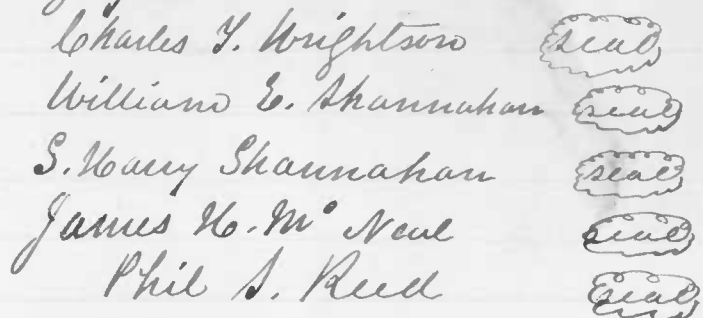 Charles T. Wrightson seal
William E. Shannahan seal
S. Harry Shannahan seal
James H. Mc Neal seal
Phil S. Reed seal